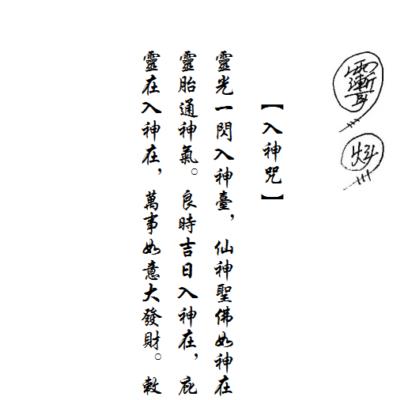 【入神咒】
靈光一閃入神臺，仙神聖佛如神在
靈胎通神氣。良時吉日入神在，庇
靈在入神在，萬事如意大發財。敕